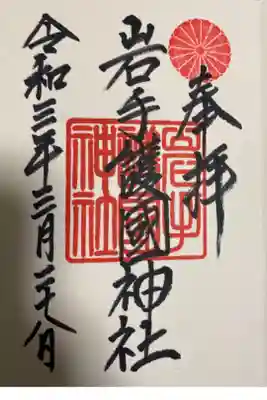 奉拝
岩手護國神社
令和三年三月二十八日
岩手
護國
神社